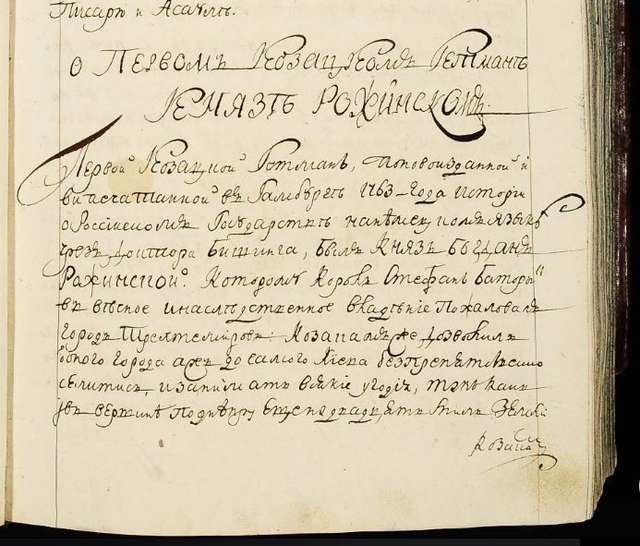 Писарю и Асаулъ.
О Первомъ Козацкомъ Гетманѣ
Князѣ Рожинскомъ.
Первой Козацкой Гетманъ, по новоизданной и
въ Гамбургѣ 1763 года истори
о Россійскомъ Государствѣ на нѣмецкомъ языкѣ
чрезъ Доктора Бишинга, былъ Князь Богданъ
Рожинской. Которому Король Стефанъ Баторы
въ вѣчное и наслѣдственное владѣніе пожаловалъ
городъ Трехтемировъ: Козакамъ же дозволилъ
отъ оного города аже до самого Кіева безпрепятственно
селитись, и занимать всякіе угодія, такъ какъ
въ вершинѣ по Днѣпру еще на двадцять миль Земли